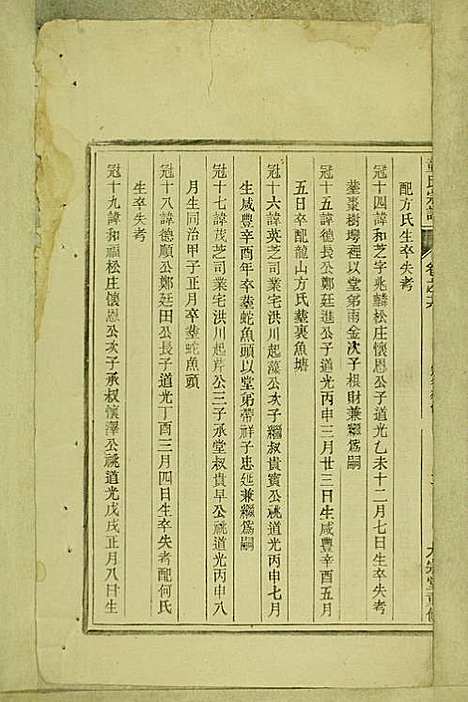 配方氏生卒失考
冠十四諱和芝字兆麟松庄懷恩公道光乙未十二月七日生卒失考
塟棗樹塆裡以堂弟雨金次子根財兼繼爲嗣
冠十五諱德長公鄭廷進公子道光丙申三月廿三日生咸豐辛酉五月
五日卒配龍山方氏塟裏魚塘
冠十六諱英芝司業宅洪川起藻公次子繼叔貴賓公祧道光丙申七月
生咸豐辛酉年卒塟蛇魚頭以堂弟帶祥子忠延兼繼爲嗣
冠十七諱茂芝司業宅洪川起芹公三子承堂叔貴早公祧道光丙申八
月生同治甲子正月卒塟蛇魚頭
冠十八諱德順公鄭廷田公長子道光丁酉三月四日生卒失考配何氏
生卒失考
冠十九諱和福松庄懷恩公次子承叔懷澤公祧道光戊戌正月八日生